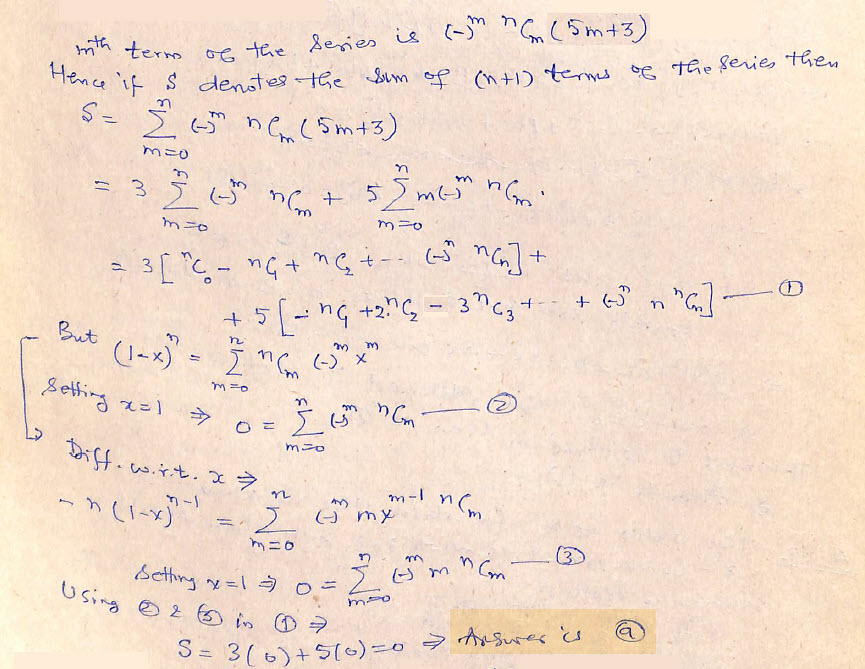 mth term of the series is (-)^m nCm (5m+3)
Hence if S denotes the sum of (n+1) terms of the series then
S = Σ_{m=0}^{n} (-)^m nCm (5m+3)
= 3 Σ_{m=0}^{n} (-)^m nCm + 5 Σ_{m=0}^{n} m(-)^m nCm.
= 3 [nC0 - nC1 + nC2 + -- (-)^n nCn] +
+ 5 [- nC1 + 2.nC2 - 3 nC3 + -- + (-)^n n nCn] — ①
But (1-x)^n = Σ_{m=0}^{n} nCm (-)^m x^m
Setting x=1 ⇒ 0 = Σ_{m=0}^{n} (-)^m nCm — ②
Diff. w.r.t. x ⇒
- n (1-x)^{n-1} = Σ_{m=0}^{n} (-)^m m x^{m-1} nCm
Setting x=1 ⇒ 0 = Σ_{m=0}^{n} (-)^m m nCm — ③
Using ② & ③ in ① ⇒
S = 3(0) + 5(0) = 0 ⇒ Answer is ⓐ